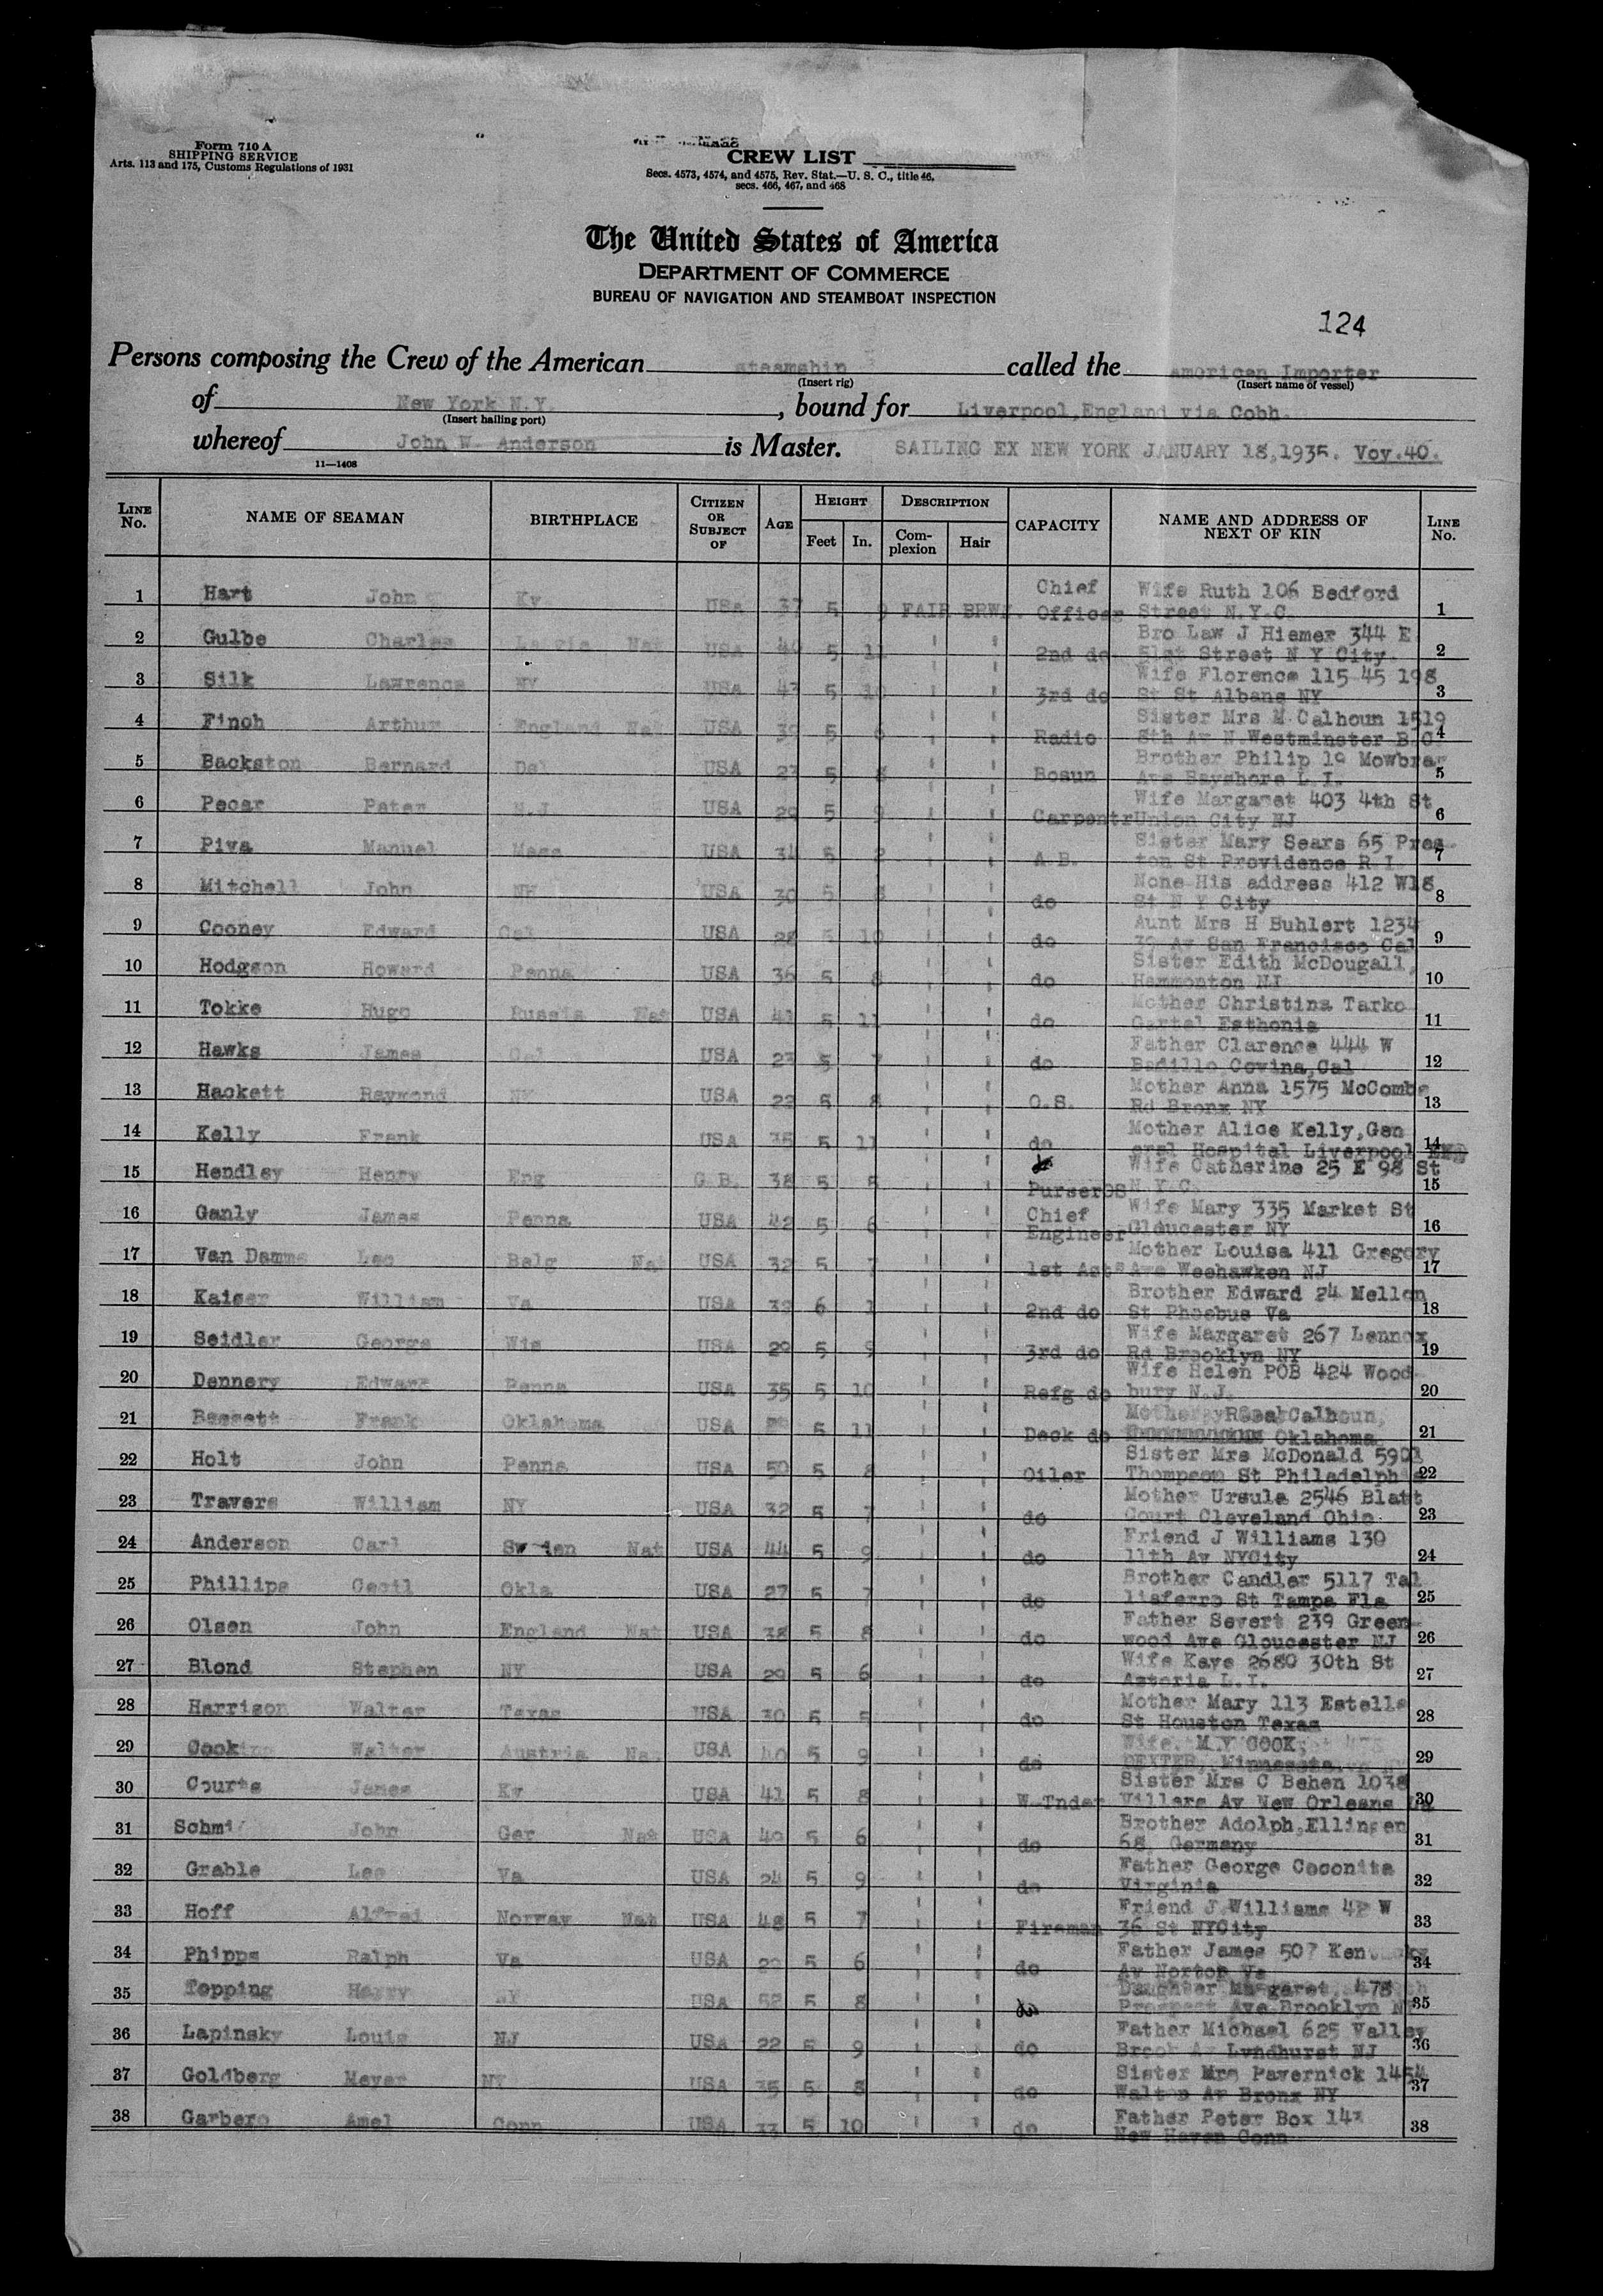 Form 710 A
SHIPPING SERVICE
Arts. 113 and 175, Customs Regulations of 1931
CREW LIST
Secs. 4573, 4574, and 4575, Rev. Stat.—U. S. C., title 46,
secs. 466, 467, and 468
The United States of America
DEPARTMENT OF COMMERCE
BUREAU OF NAVIGATION AND STEAMBOAT INSPECTION
124
Persons composing the Crew of the American steamship called the American Importer
(Insert rig) (Insert name of vessel)
of New York N.Y. , bound for Liverpool,England via Cobh.
(Insert hailing port)
whereof John W. Anderson is Master. SAILING EX NEW YORK JANUARY 18,1935. Voy.40.
11—1408
LINE No. NAME OF SEAMAN BIRTHPLACE CITIZEN OR SUBJECT OF AGE HEIGHT Feet In. DESCRIPTION Complexion Hair CAPACITY NAME AND ADDRESS OF NEXT OF KIN LINE No.
1 Hart John Ky. USA 37 5 9 FAIR BRWN. Chief Officer Wife Ruth 106 Bedford Street N.Y.C. 1
2 Gulbe Charles Nat USA 40 5 11 " " 2nd do Bro Law J Hiemer 344 E 51st Street N Y City. 2
3 Silk Lawrence NY USA 43 5 10 " " 3rd do Wife Florence 115 45 198 St St Albans NY 3
4 Finch Arthur England Nat USA 39 5 6 " " Radio Sister Mrs M Calhoun 1519 8th Av N.Westminster B.C. 4
5 Backston Bernard Del USA 27 5 8 " " Bosun Brother Philip 19 Mowbray Ave Bayshore L.I. 5
6 Pecar Peter N.J USA 29 5 9 " " Carpentr Wife Margaret 403 4th St Union City NJ 6
7 Piva Manuel Mass USA 34 5 2 " " A.B. Sister Mary Sears 65 Pres- ton St Providence R.I. 7
8 Mitchell John NH USA 30 5 8 " " do None His address 412 W18 St N Y City 8
9 Cooney Edward Cal USA 28 5 10 " " do Aunt Mrs H Buhlert 1234 39 Av San Francisco Cal 9
10 Hodgson Howard Penna USA 36 5 8 " " do Sister Edith McDougall, Hammonton NJ 10
11 Tokke Hugo Russia Nat USA 41 5 11 " " do Mother Christina Tarko Esthonia 11
12 Hawks James Cal USA 23 5 7 " " do Father Clarence 444 W Badillo Covina,Cal 12
13 Hackett Raymond NY USA 22 5 8 " " O.S. Mother Anna 1575 McCombs Rd Bronx NY 13
14 Kelly Frank USA 35 5 11 " " do Mother Alice Kelly,Gen eral Hospital Liverpool Eng 14
15 Hendley Henry Eng G B. 38 5 5 " " PurserOS Wife Catherine 25 E 98 St N.Y.C. 15
16 Ganly James Penna USA 42 5 6 " " Chief Engineer Wife Mary 335 Market St Gloucester NY 16
17 Van Damme Leo Belg Nat USA 32 5 7 " " 1st Asts Mother Louisa 411 Gregory Ave Weehawken NJ 17
18 Kaiser William Va USA 39 6 1 " " 2nd do Brother Edward 24 Mellen St Phoebus Va 18
19 Seidler George Wis USA 29 5 9 " " 3rd do Wife Margaret 267 Lennox Rd Brooklyn NY 19
20 Dennery Edward Penna USA 35 5 10 " " Refg do Wife Helen POB 424 Wood- bury N.J. 20
21 Bassett Frank Oklahoma USA 5 11 " " Deck do Calhoun, Oklahoma 21
22 Holt John Penna USA 50 5 8 " " Oiler Sister Mrs McDonald 5901 Thompson St Philadelphia 22
23 Travers William NY USA 32 5 7 " " do Mother Ursula 2546 Blatt Court Cleveland Ohio 23
24 Anderson Carl Sweden Nat USA 44 5 9 " " do Friend J Williams 130 11th Av NYCity 24
25 Phillips Cecil Okla USA 27 5 7 " " do Brother Candler 5117 Tal liaferro St Tampa Fla 25
26 Olsen John England Nat USA 38 5 8 " " do Father Severt 239 Green- wood Ave Gloucester NJ 26
27 Blond Stephen NY USA 29 5 6 " " do Wife Kaye 2680 30th St Astoria L.I. 27
28 Harrison Walter Texas USA 30 5 5 " " do Mother Mary 113 Estelle St Houston Texas 28
29 Cook Walter Austria Nat USA 40 5 9 " " do Wife. M.Y COOK, DEXTER, Minnesota 29
30 Courts James Ky USA 41 5 8 " " W-Tnder Sister Mrs C Behen 1038 Villere Av New Orleans La 30
31 Schmi John Ger Nat USA 49 5 6 " " do Brother Adolph,Ellingen 68, Germany 31
32 Grable Lee Va USA 24 5 9 " " do Father George Coconita Virginia 32
33 Hoff Alfred Norway Nat USA 48 5 7 " " Fireman Friend J.Williams 42 W 36 St NYCity 33
34 Phipps Ralph Va USA 29 5 6 " " do Father James 507 Kentucky Av Norton Va 34
35 Topping Harry NY USA 52 5 8 " " do Daughter Margaret 478 Prospect Ave Brooklyn NY 35
36 Lapinsky Louis NJ USA 22 5 9 " " do Father Michael 625 Valley Brook Av Lyndhurst NJ 36
37 Goldberg Meyer NY USA 35 5 8 " " do Sister Mrs Pavernick 1454 Walton Av Bronx NY 37
38 Garbero Amel Conn USA 33 5 10 " " do Father Peter Box 143 New Haven Conn 38